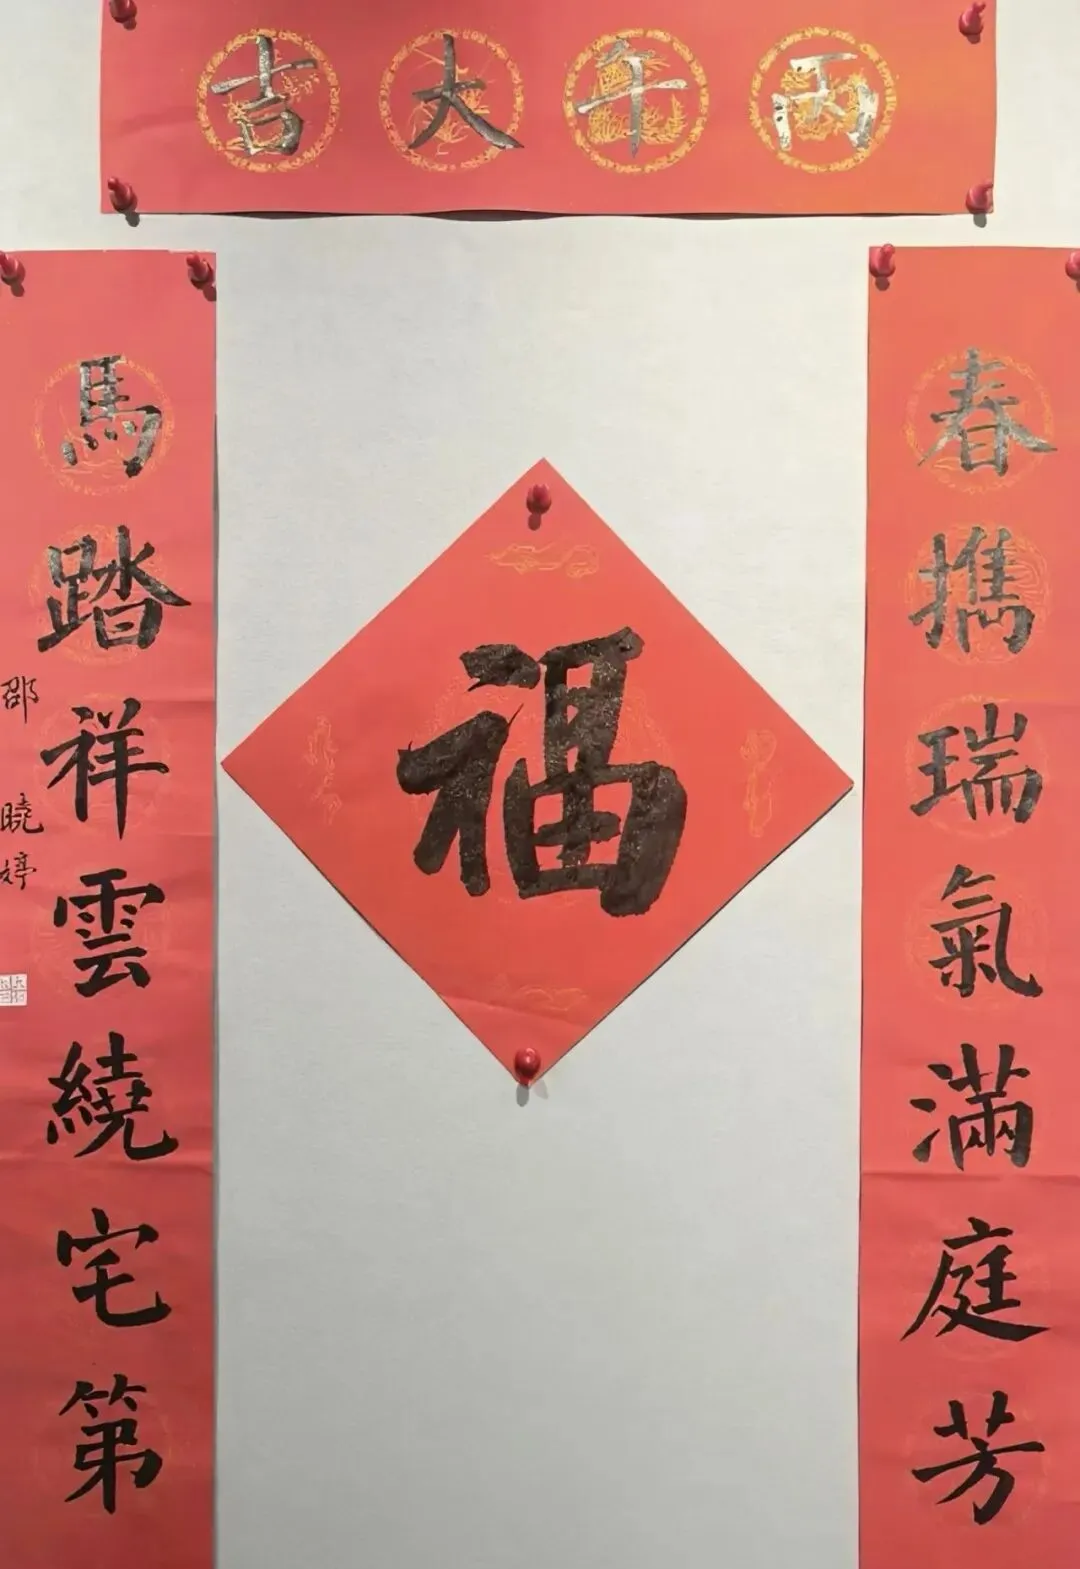 丙年大吉
春攜瑞氣滿庭芳
馬踏祥雲繞宅第
邵曉婷
福